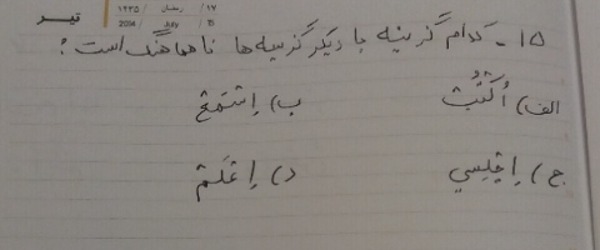 تیر ١٧ / رمضان / ١٤٣٥
15 / July / 2014
١٥ـ کدام گزینه با دیگر گزینه ها ناهماهنگ است؟
الف) اُکْتُبْ ب) اِسْتَمِعْ
ج) اِجْلِسي د) اِعْلَمْ